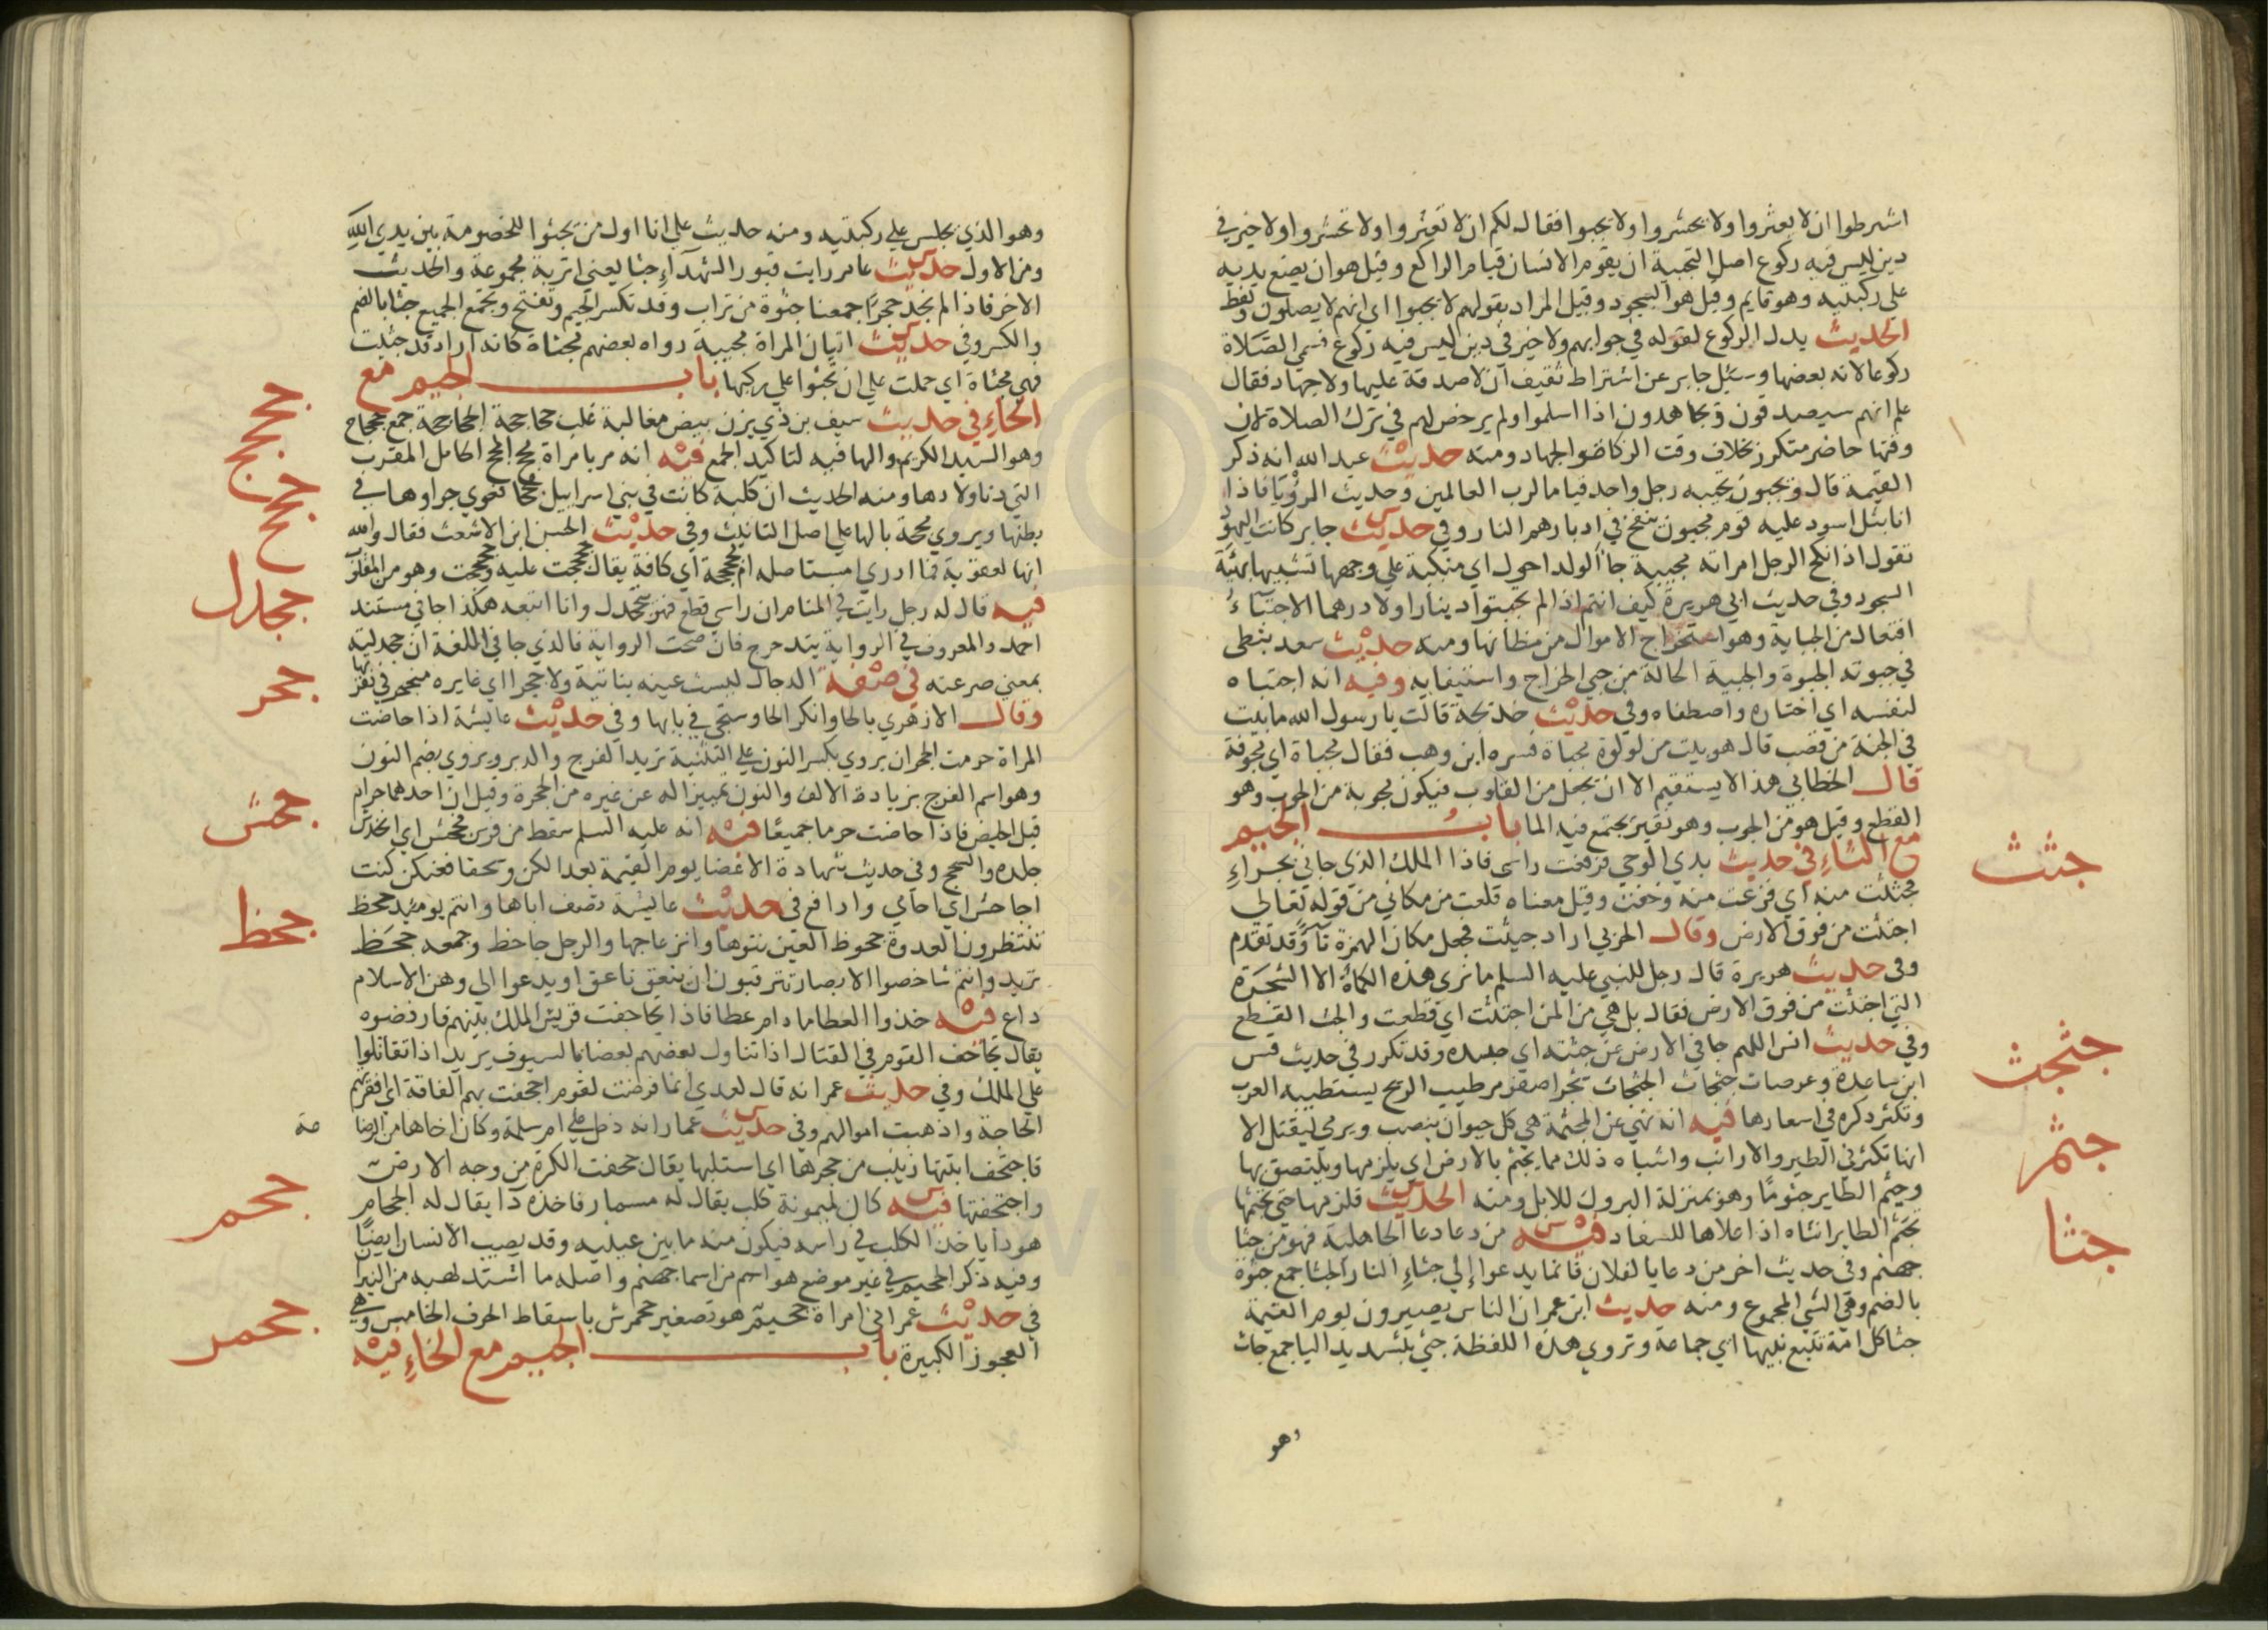 اشترطوا ان لا يعشروا ولا يحشروا ولا يجبوا فقال لكم ان لا تعشروا ولا تحشروا ولا خير في
دين ليس فيه ركوع اصل التجبية ان يقوم الانسان قيام الراكع وقيل هو ان يضع يديه
علي ركبتيه وهو قايم وقيل هو السجود وقيل المراد بقولهم لا يجبوا اي انهم لا يصلون ولفظ
الحديث يدل الركوع لقوله في جوابهم ولا خير في دين ليس فيه ركوع فسمي الصلاة
ركوعا لانه بعضها وسئل جابر عن اشتراط ثقيف ان لا صدقة عليها ولا جهاد فقال
علم انهم سيصدقون ويجاهدون اذا اسلموا ولم يرخص لهم في ترك الصلاة لان
وقتها حاضر متكرر بخلاف وقت الزكاة والجهاد ومنه حديث عبد الله انه ذكر
القيمة قال ويجبون تجبيه رجل واحد قياما لرب العالمين وحديث الرؤيا فاذا
انا بتل اسود عليه قوم مجبون ينفخ في ادبارهم النار وفي حديث جابر كانت اليهود
تقول اذا نكح الرجل امراته مجبية جا الولد احول اي منكبة علي وجهها تشبيها بهيئة
السجود وفي حديث ابي هريرة كيف انتم اذا لم تجبتوا دينارا ولا درهما الاجتباء
افتعال من الجباية وهو استخراج الاموال من مظانها ومنه حديث سعد يبطي
في جبوته الجبوة والجبية الحالة من جبي الخراج واستيفايه وفيه انه اجتباه
لنفسه اي اختاره واصطفاه وفي حديث خديجة قالت يا رسول الله ما بيت
في الجنة من قصب قال هو بيت من لولوة مجباة فسره ابن وهب فقال مجباة اي مجوفة
قال الخطابي هذا لا يستقيم الا ان يجعل من المقلوب فيكون مجوبة من الجوب وهو
القطع وقيل هو من الجوب وهو نقير يجتمع فيه الما باب الجيم
مع الثاء في حديث بدي الوحي فرفعت راسي فاذا الملك الذي جاني بحراء
فجثثت منه اي فزعت منه وخفت وقيل معناه قلعت من مكاني من قوله تعالي
اجتثت من فوق الارض وقال الحربي اراد جيئت فجعل مكان الهمزة ثاء وقد تقدم
وفي حديث هريرة قال رجل للنبي عليه السلم ما نري هذه الكماة الا الشجرة
التي اجتثت من فوق الارض فقال بل هي من المن اجتثت اي قطعت والجث القطع
وفي حديث انس اللهم جافي الارض عن جثته اي جسده وقد تكرر في حديث قس
ابن ساعدة وعرصات جثجاث الجثجاث شجر اصفر مر طيب الريح يستطيبه العرب
وتكثر ذكره في اسعارها فيه انه نهي عن المجثمة هي كل حيوان ينصب ويرمي ليقتل الا
انها تكثر في الطير والارانب واشباه ذلك مما يجثم بالارض اي يلزمها ويلتصق بها
وجثم الطاير جثوما وهو بمنزلة البروك للابل ومنه الحديث فلزمها حتي تجثمها
تجثم الطاير انثاه اذا علاها للسفاد فيه من دعا دعا الجاهلية فهو من جثا
جهنم وفي حديث اخر من دعا يا لفلان فانما يدعوا الي جثاء النار الجثا جمع جثوة
بالضم وهي الشي المجموع ومنه حديث ابن عمر ان الناس يصيرون يوم القيمة
جثا كل امة تتبع نبيها اي جماعة وتروي هذه اللفظة جثي بتشديد اليا جمع جاث
وهو
جثث
جثجث
جثم
جثا
وهو الذي يجلس علي ركبتيه ومنه حديث علي انا اول من يجثوا للخصومة بين يدي الله
ومن الاول حديث عامر رايت قبور الشهداء جثا يعني اتربة مجموعة والحديث
الاخر فاذا لم نجد حجرا جمعنا جثوة من تراب وقد تكسر الجيم وتفتح ويجمع الجميع جثا بالضم
والكسر وفي حديث اتيان المراة مجبية رواه بعضهم مجثاة كانه اراد قد جثيت
فهي مجثاة اي حملت علي ان تجثوا علي ركبها باب الجيم مع
الحاء في حديث سيف بن ذي يزن بيض مغالبة غلب جحاجحة الجحاجحة جمع جحجاح
وهو السيد الكريم والها فيه لتاكيد الجمع فيه انه مر بامراة مجح المجح الحامل المقرب
التي دنا ولادها ومنه الحديث ان كلبة كانت في بني اسرايل مجحا فعوي جراوها في
بطنها ويروي مجحة بالها علي اصل التانيث وفي حديث الحسن ابن الاشعث فقال والله
انها لعقوبة فما ادري امستاصله ام مجحجحة اي كافة يقال جحجحت عليه وحجحجت وهو من المقلوب
فيه قال له رجل رايت في المنام ان راسي قطع فهو يتجحدل وانا اتبعه هكذا جا في مسند
احمد والمعروف في الرواية يتدحرج فان صحت الرواية فالذي جا في اللغة ان جحدلته
بمعني صرعته في صفة الدجال ليست عينه بناتية ولا جحرا اي غايره منجحر في نقرتها
وقال الازهري بالخا وانكر الحا وستجي في بابها وفي حديث عايشة اذا حاضت
المراة حرمت الجحران يروي بكسر النون علي التثنية تريد الفرج والدبر ويروي بضم النون
وهو اسم الفرج بزيادة الالف والنون تمييزا له عن غيره من الجحرة وقيل ان احدهما حرام
قبل الحيض فاذا حاضت حرما جميعا فيه انه عليه السلم سقط من فرس فجحش اي انخدش
جلده وانسحج وفي حديث شهادة الاعضا يوم القيمة بعدا لكن وسحقا فعنكن كنت
اجاحش اي احامي وادافع في حديث عايشة تصف اباها وانتم يوميذ جحظ
تنتظرون العدوة جحوظ العين نتوها وانزعاجها والرجل جاحظ وجمعه جحظ
تريد وانتم شاخصوا الابصار تترقبون ان ينعق ناعق او يدعوا الي وهن الاسلام
داع فيه خذوا العطا ما دام عطا فاذا تجاحفت قريش الملك بينهم فارفضوه
يقال تجاحف القوم في القتال اذا تناول بعضهم بعضا بالسيوف يريد اذا تقاتلوا
علي الملك وفي حديث عمر انه قال لعدي انما فرضت لقوم اجحفت بهم الفاقة اي افقرتهم
الحاجة واذهبت اموالهم وفي حديث عمار انه دخل علي ام سلمة وكان اخاها من الرضا
عة
فاجتحف ابنتها زينب من حجرها اي استلبها يقال جحفت الكرة من وجه الارض
واجتحفتها فيه كان لميمونة كلب يقال له مسمار فاخذه دا يقال له الجحام
هو دا ياخذ الكلب في راسه فيكون منه ما بين عينيه وقد يصيب الانسان ايضا
وفيه ذكر الجحيم في غير موضع هو اسم من اسما جهنم واصله ما اشتد لهبه من النيران
في حديث عمر اني امراة جحيمر هو تصغير جحمرش باسقاط الحرف الخامس وهي
العجوز الكبيرة باب الجيم مع الخاء فيه
جحجح
جحح
جحدل
جحر
جحش
جحظ
جحم
جحمر